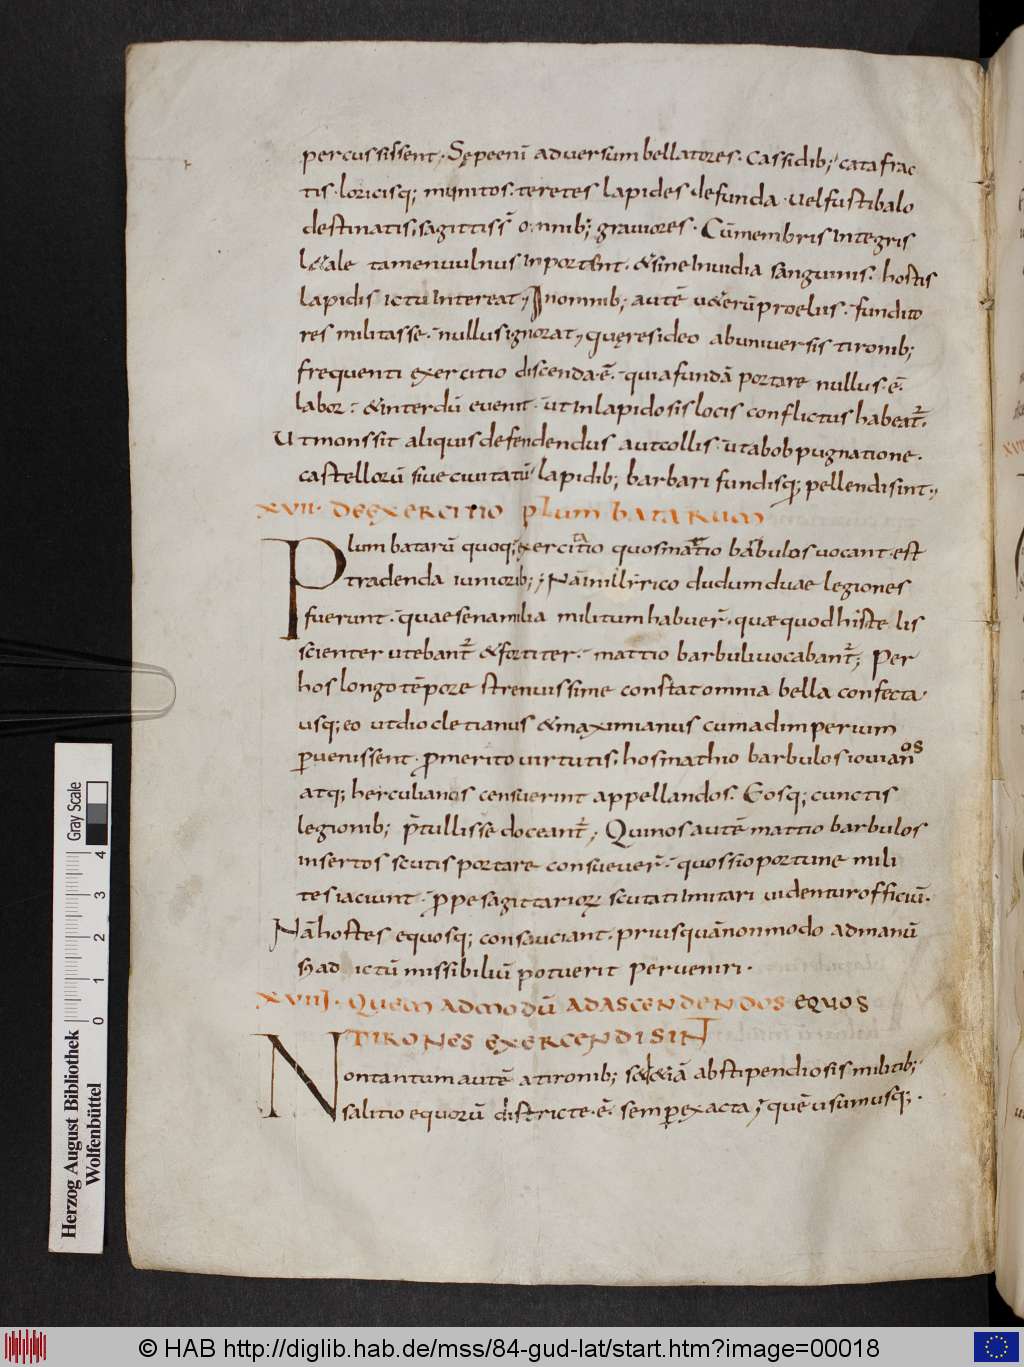 percussissent. Sępeenī adversum bellatores. cassidib; catafrac
tis. loricisq; munitos. teretes lapides defunda. velfustibalo
destinatis; sagittis omnib; graviores. Cūmembris integris
l&ale tamenvulnus inportent. &sineinvidia sanguinis. hostis
lapidis ictu intereat; Inomnib; autē v&erū proeliis. fundito
res militasse. nullusignorat, quęresideo abuniversis tironib;
frequenti exercitio discenda.ē. quiafundā portare nullus.ē.
labor. &interdū evenit. utinlapidosislocis conflictus habeat̄.
Utmonssit aliquisdefendendus autcollis. utabobpugnatione.
castellorū sivecivitatū lapidib; barbari fundisq; pellendisint.
XVII. DEEXERCITIO PLUMBATARUM
Plumbatarū quoq; exercitatio quosmattio barbulosvocant. est
tradenda iuniorib;; Nāinillirico dudumduae legiones
fuerunt. quaesenamilia militumhabuer̄. quaequodhistelis
scienter utebant̄ &fortiter. mattio barbulivocabant̄; Per
hoslongotēpore strenuissime constatomnia bella confecta.
usq;eo utdiocletianus &maximianus cumadimperium
pvenissent. pmeritovirtutis. hosmathio barbulosiovianos
atq; herculianos censuerint appellandos. Eosq; cunctis
legionib; p̄tullisse doceant̄; Quinosautē mattio barbulos
insertos scutis portare consuever̄. quossioportune mili
tesiaciunt. ppesagittariorꝝ scutatiimitari videnturofficiū.
Nāhostes equosq; consauciant. priusquānonmodo admanū
s&ad ictū missibiliū potuerit perveniri.
XVIIJ. QUEMADMODŪ ADASCENDENDOS EQUOS
TIRONES EXERCENDISINT
Nontantumautē atironib; s&&iā abstipendiosismilitib;
salitioequorū districte.ē. sempexacta, quēusumusq;.
Herzog August Bibliothek
Wolfenbüttel
0 1 2 3 4
Gray Scale
© HAB http://diglib.hab.de/mss/84-gud-lat/start.htm?image=00018